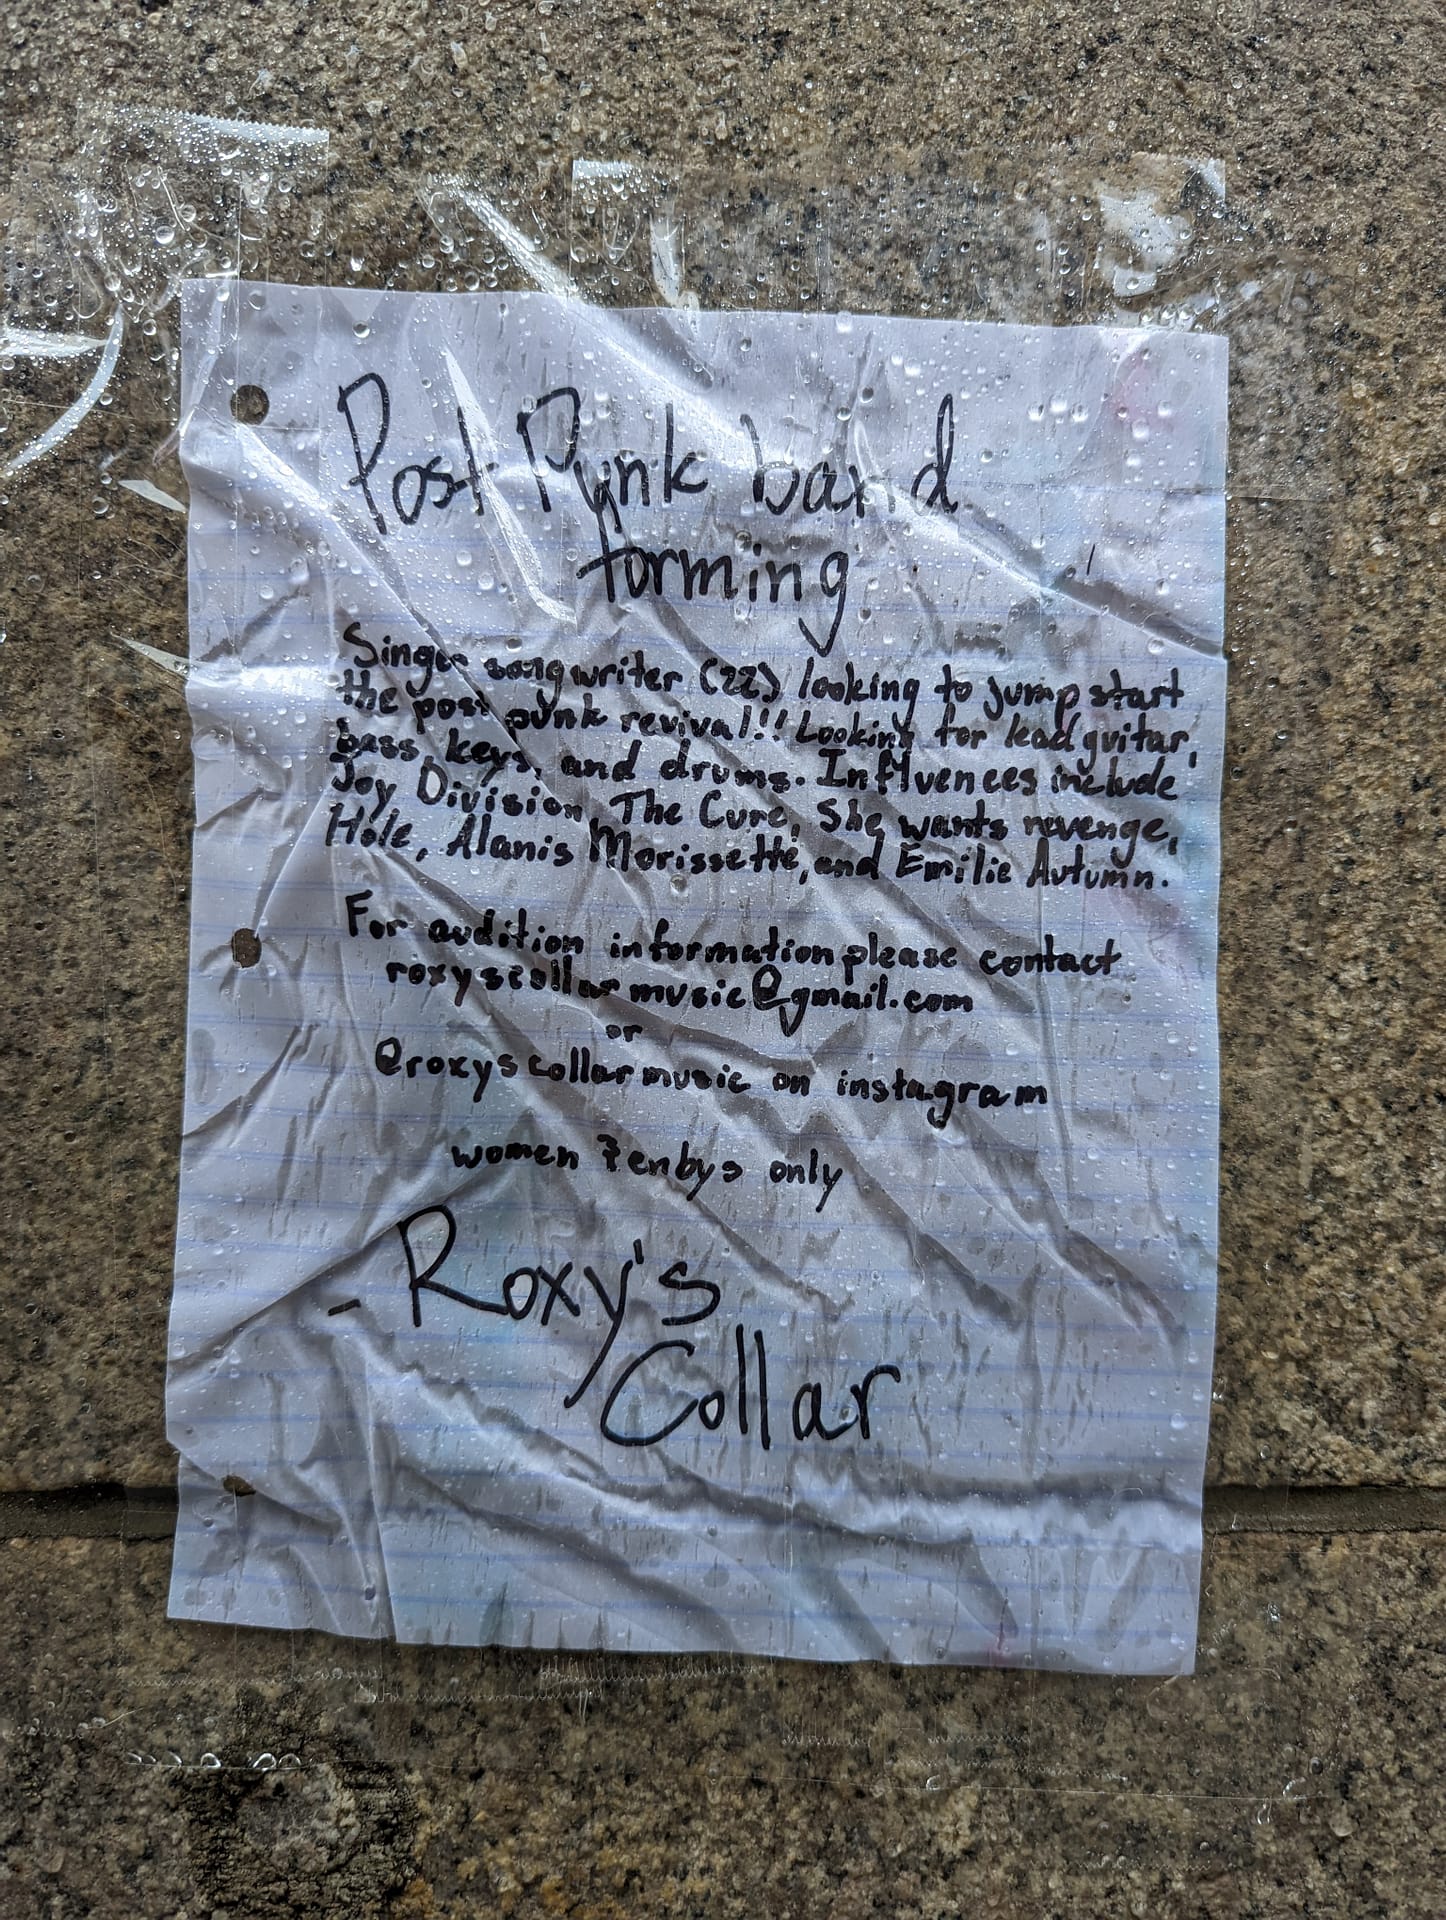 Post Punk band
forming
Singer songwriter (22) looking to jump start
the post punk revival!! Looking for lead guitar,
bass, keys, and drums. Influences include
Joy Division, The Cure, She wants revenge,
Hole, Alanis Morissette, and Emilie Autumn.
For audition information please contact
roxyscollarmusic@gmail.com
or
@roxyscollarmusic on instagram
women & enbys only
- Roxy's
Collar